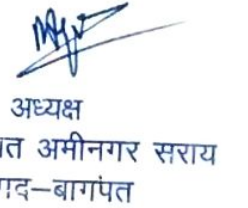 अध्यक्ष
त अमीनगर सराय
पद–बागपत